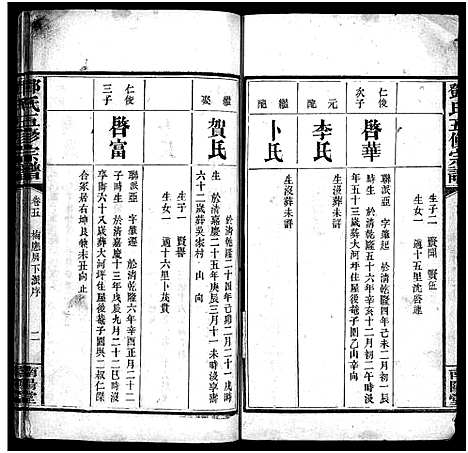 鄧氏五修宗譜
生子二 賢開 賢伍
生女一 適十五里沈啓連
仁俊
次子
啓華
聯派亞 字肇起 於清乾隆四十四年己未二月初二
時生 於清乾隆五十六年辛亥十二月初二午時没
年五十三歲葬大河坪住屋後菴子園乙山辛向
元
配
李氏
生没葬未詳
繼
配
卜氏
生没葬未詳
南陽堂
繼
娶
賀氏
於清乾隆二十四年己卯二月二十一時
生 於清嘉慶二十五年庚辰三月十一未時没享齋
六十二歲葬吳家村 山 向
生子一 賢譽
生女一 適十六里卜茂貴
仁俊
三子
啓富
聯派亞 字肇遷 於清乾隆六年辛酉正月二十二
子時生 於清嘉慶十三年戊辰九月二十二日戌時没
享齋六十八歲葬大河坪住屋後菴子園與二叔仁傑
合冢居右塊艮快未丑向止
鄧氏五修宗譜
卷五
下派序
二
南陽堂